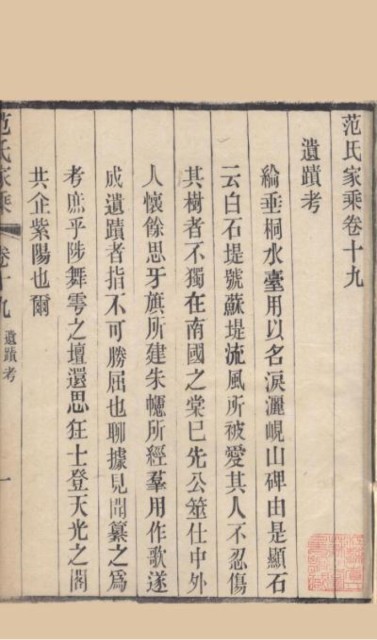 范氏家乘卷十九
遺蹟考
綸垂桐水臺用以名淚灑峴山碑由是顯石
云白石堤號蘇堤流風所被愛其人不忍傷
其樹者不獨在南國之棠巳先公筮仕中外
人懷餘思牙旗所建朱幰所經羣用作歌遂
成遺蹟者指不可勝屈也聊據見聞纂之為
考庶乎陟舞雩之壇還思狂士登天光之閣
共企紫陽也爾
范氏家乘
卷十九
遺蹟考
一